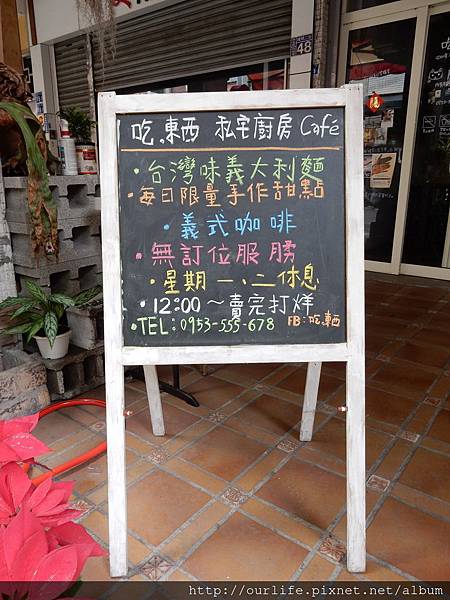 48
吃.東西 私宅廚房 Café
·台灣味義大利麵
·每日限量手作甜點
·義式咖啡
·無訂位服務
·星期一、二休息
·12:00~賣完打烊
·TEL:0953-555-678 FB:吃.東西
http://ourlife.pixnet.net/blog